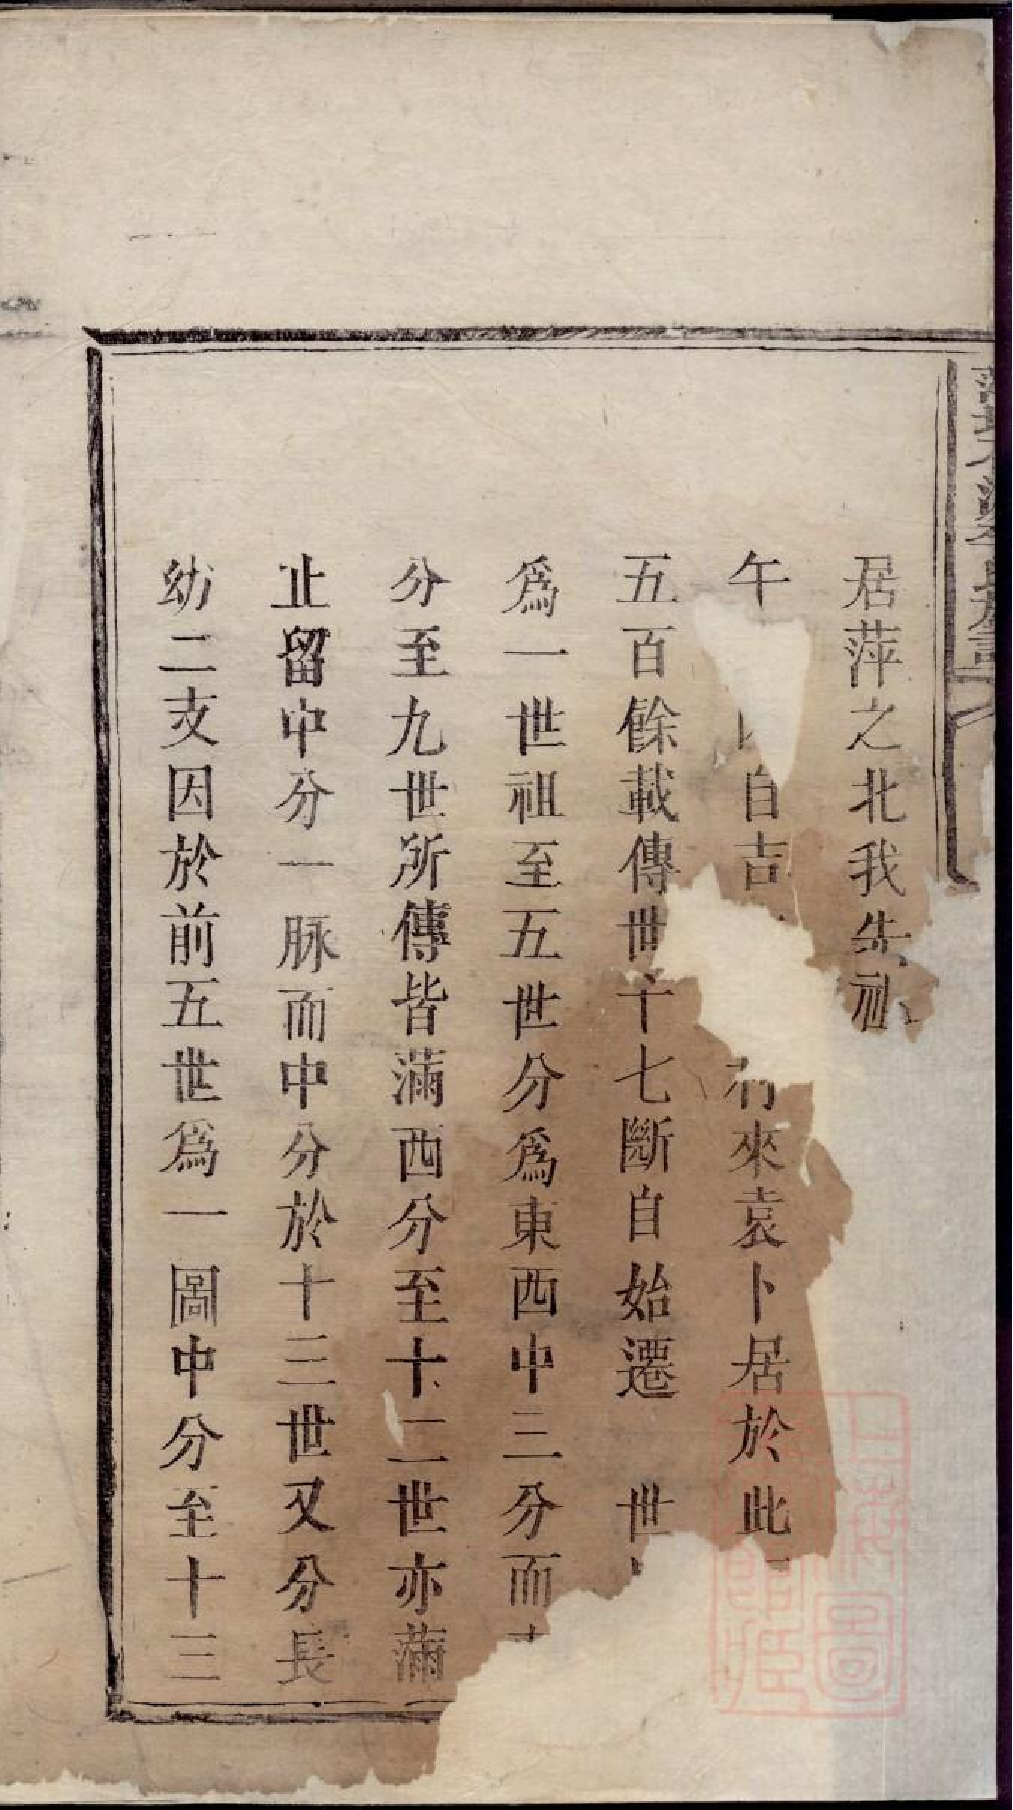 居萍之北我先祖
午自吉來袁卜居於此
五百餘載傳世十七斷自始遷世
爲一世祖至五世分爲東西中三分而
分至九世所傳皆滿西分至十二世亦滿
止留中分一脉而中分於十三世又分長
幼二支因於前五世爲一圖中分至十三